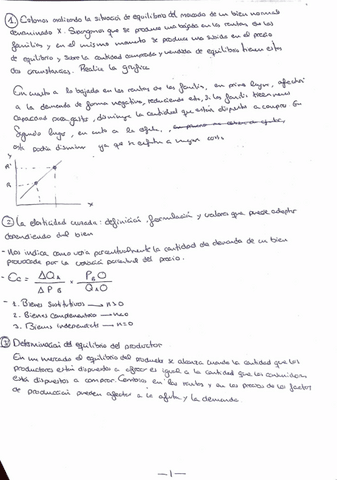 ① Estamos analizando la situación de equilibrio del mercado de un bien normal
denominado X. Supongamos que se produce una bajada en las rentas de las
familias y en el mismo momento se produce una subida en el precio
de equilibrio y sobre la cantidad comprada y vendida de equilibrio tienen estas
dos circunstancias. Realice la gráfica
En cuanto a la bajada en las rentas de las familias, en primer lugar, afectará
a la demanda de forma negativa, reduciendo esta, si las familias tienen menos
capacidad para gastar, disminuye la cantidad que están dispuestos a comprar. En
segundo lugar, en cuanto a la oferta,
esta podría disminuir ya que se enfrenta a mayor coste.
Y
X
② La elasticidad cruzada: definición, formulación y valores que puede adoptar
dependiendo del bien
- Nos indica como varía porcentualmente la cantidad de demanda de un bien
provocada por la variación porcentual del precio.
- Cc = ΔQA / ΔPB × PBO / QAO
- 1. Bienes Sustitutivos → n>0
2. Bienes Complementarios → n<0
3. Bienes independientes → n=0
③ Determinación del equilibrio del productor
En un mercado el equilibrio del producto se alcanza cuando la cantidad que los
productores están dispuestos a ofrecer es igual a la cantidad que los consumidores
están dispuestos a comprar. Cambios en las rentas y en los precios de los factores
de producción pueden afectar a la oferta y la demanda.
- 1 -